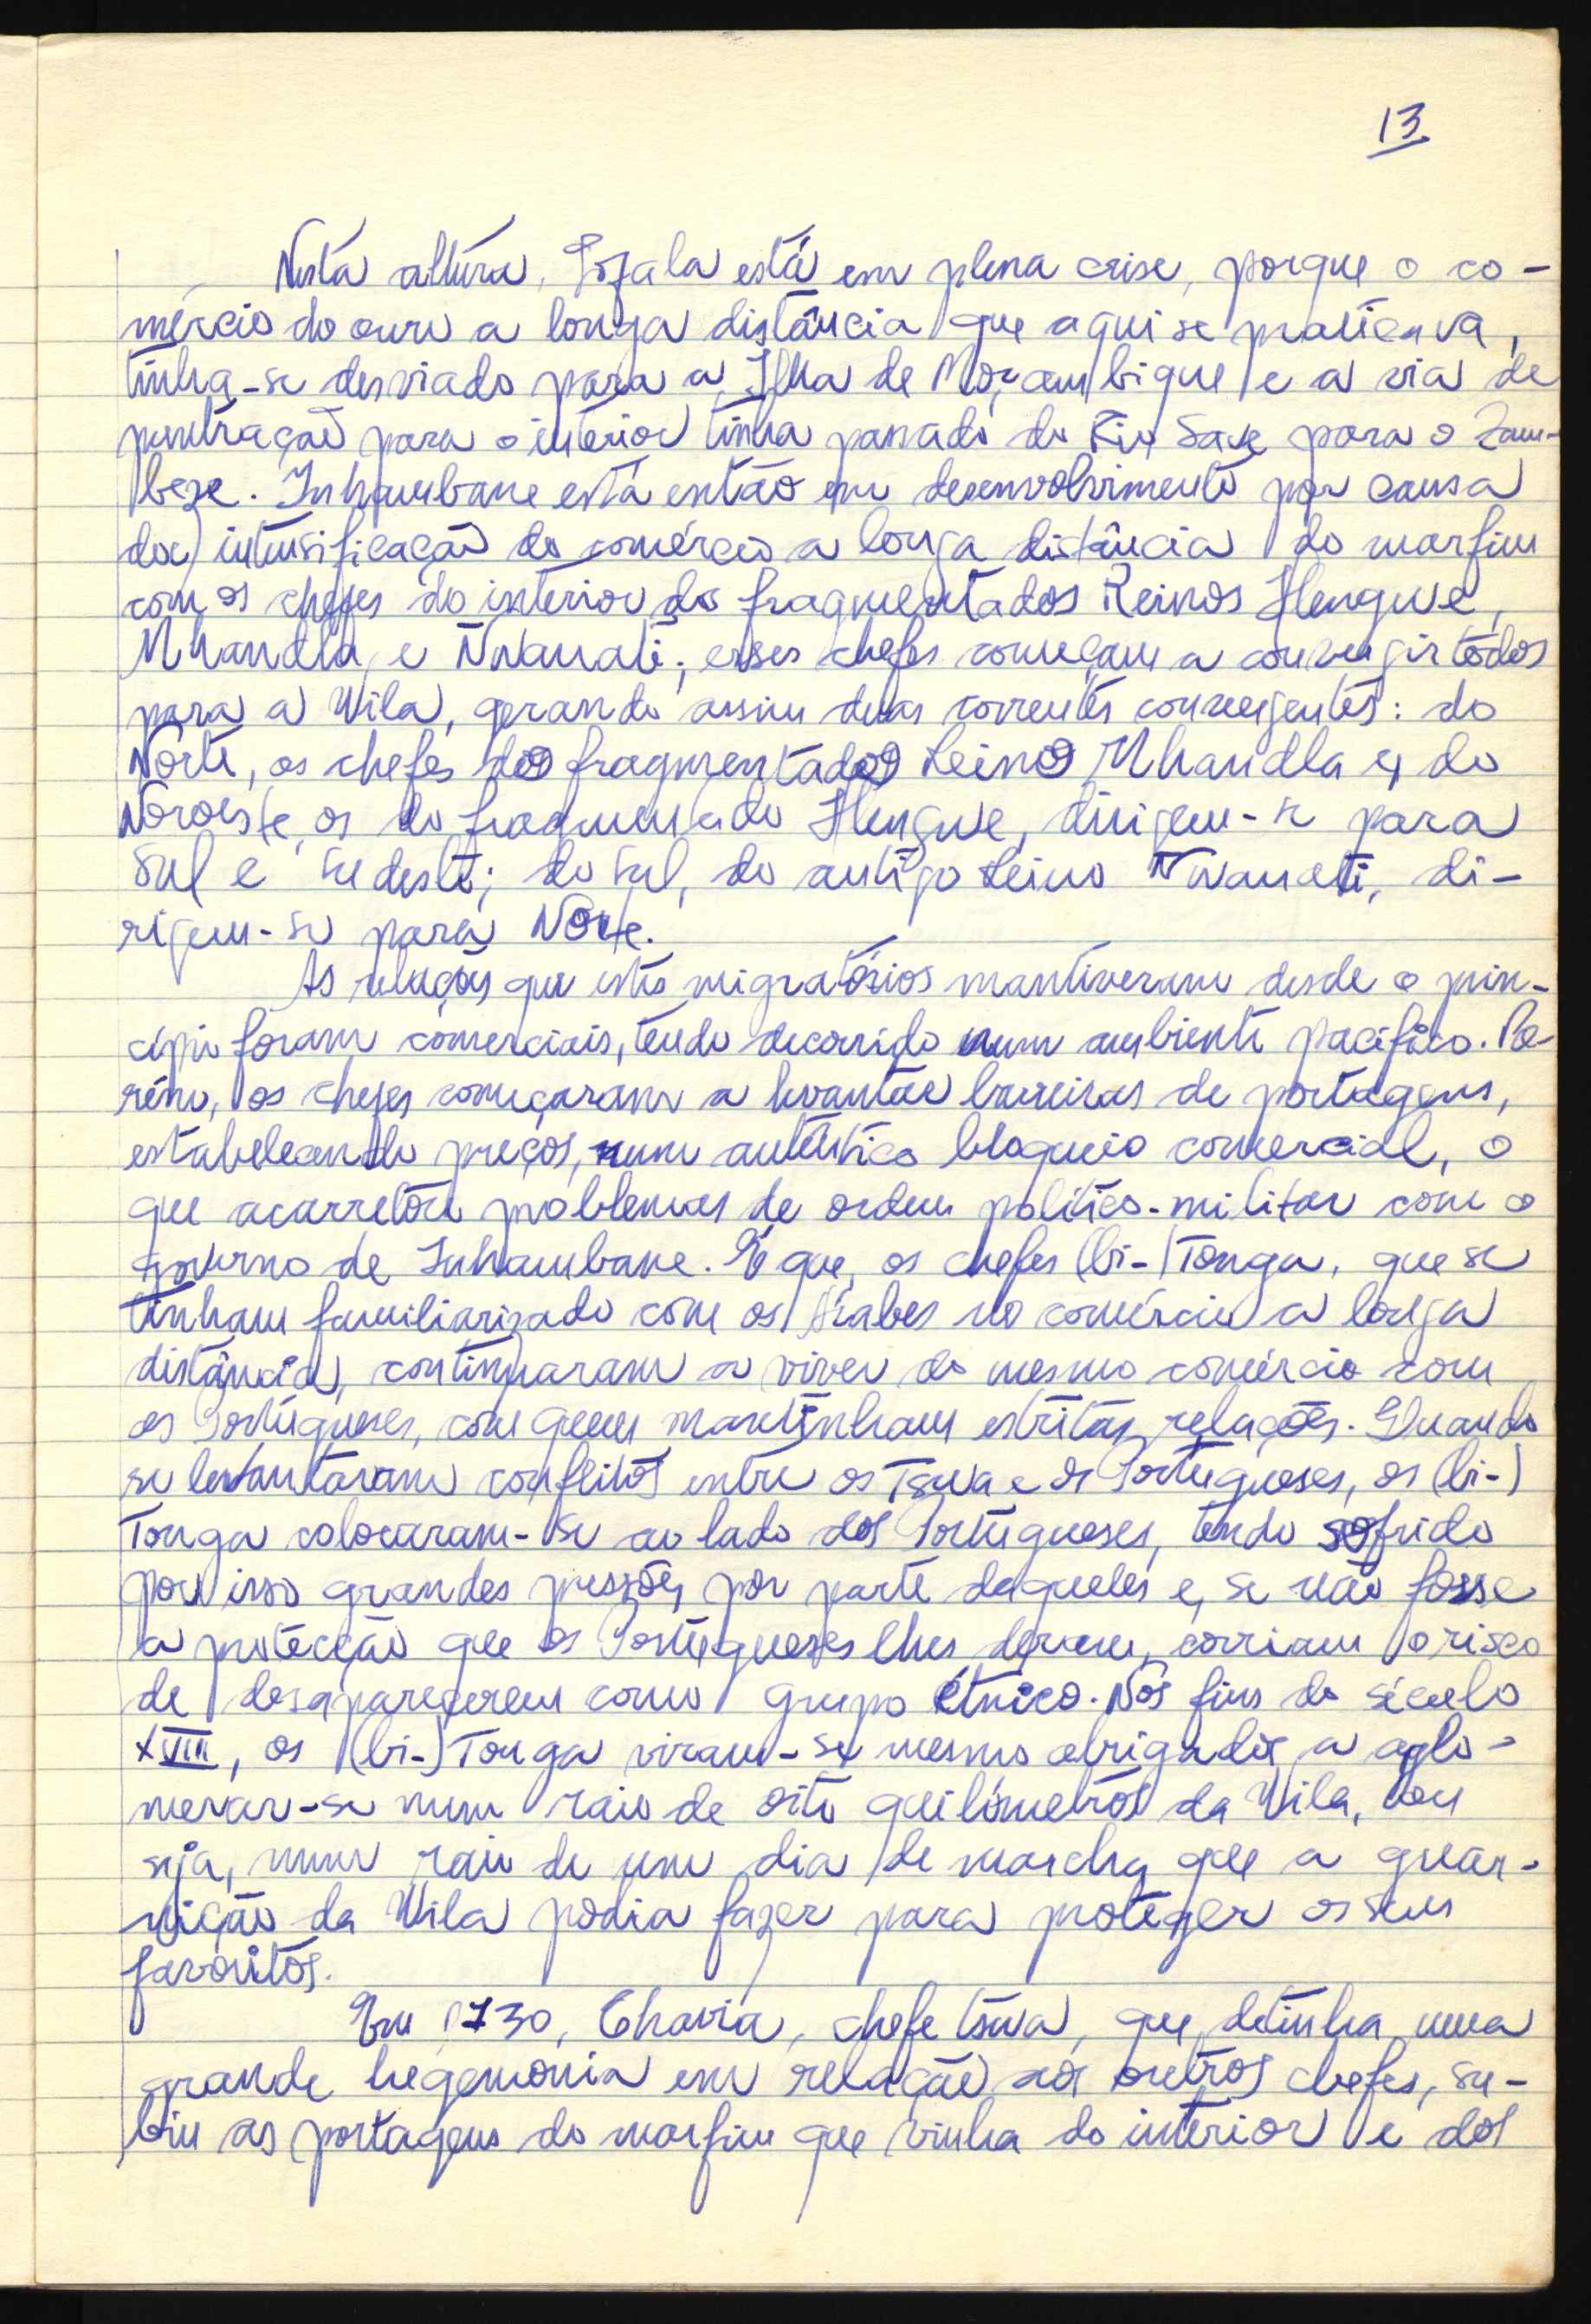 13
Nesta altura, Sofala está em plena crise, porque o co-
mércio do ouro a longa distância que aqui se praticava,
tinha-se desviado para a Ilha de Moçambique e a via de
penetração para o interior tinha passado do Rio Save para o Zam-
beze. Inhambane está então em desenvolvimento por causa
da intensificação do comércio a longa distância do marfim
com os chefes do interior dos fragmentados Reinos Hlengwe,
Mhandla e Nwanati; esses chefes começam a convergir todos
para a Vila, gerando assim duas correntes convergentes: do
Norte, os chefes do fragmentado Reino Mhandla e, do
Noroeste, os do fragmentado Hlengwe, dirigem-se para
Sul e Sudeste; do Sul, do antigo Reino Nwanati, di-
rigem-se para Norte.
As relações que estes migratórios mantiveram desde o prin-
cípio foram comerciais, tendo decorrido num ambiente pacífico. Po-
rém, os chefes começaram a levantar barreiras de portagens,
estabelecendo preços, num autêntico bloqueio comercial, o
que acarretou problemas de ordem político-militar com o
governo de Inhambane. É que, os chefes (bi-)Tonga, que se
tinham familiarizado com os Árabes no comércio a longa
distância, continuaram a viver do mesmo comércio com
os Portugueses, com quem mantinham estritas relações. Quando
se levantaram conflitos entre os Tswa e os Portugueses, os (bi-)
Tonga colocaram-se ao lado dos Portugueses, tendo sofrido
por isso grandes pressões por parte daqueles e, se não fosse
a protecção que os Portugueses lhes deram, corriam o risco
de desaparecerem como grupo étnico. Nos fins do século
XVIII, os (bi-)Tonga viram-se mesmo obrigados a aglo-
merar-se num raio de oito quilómetros da Vila, ou
seja, num raio de um dia de marcha que a guar-
nição da Vila podia fazer para proteger os seus
favoritos.
Em 1730, Chavia, chefe tswa, que detinha uma
grande hegemonia em relação aos outros chefes, su-
biu as portagens do marfim que vinha do interior e dos